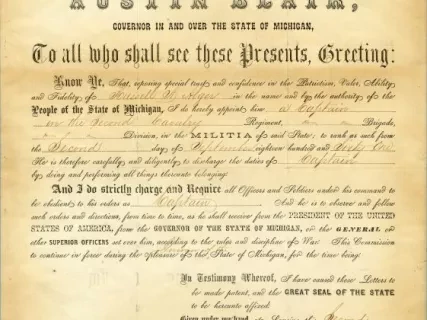 AUSTIN BLAIR,
GOVERNOR IN AND OVER THE STATE OF MICHIGAN,
To all who shall see these Presents, Greeting:
Know Ye, That, reposing special trust and confidence in the Patriotism, Valor, Ability
and Fidelity of Russell A. Alger in the name and by the authority of the
People of the State of Michigan, I do hereby appoint him a Captain
in the Second Cavalry Regiment, Brigade,
Division, in the MILITIA of said State; to rank as such from
the Second day of September eighteen hundred and Sixty One
He is therefore carefully, and diligently, to discharge the duties of Captain
by doing and performing all things thereunto belonging:
And I do strictly charge and Require all Officers and Soldiers under his command to
be obedient to his orders as Captain And he is to observe and follow
such orders and directions, from time, to time, as he shall receive from the PRESIDENT OF THE UNITED
STATES OF AMERICA, from the GOVERNOR OF THE STATE OF MICHIGAN, or the GENERAL or
other SUPERIOR OFFICERS set over him, according to the rules and discipline of War. This Commission
to continue in force during the pleasure of the State of Michigan, for the time being.
In Testimony Whereof, I have caused these Letters to
be made patent, and the GREAT SEAL OF THE STATE
to be hereunto affixed.
Given under my hand